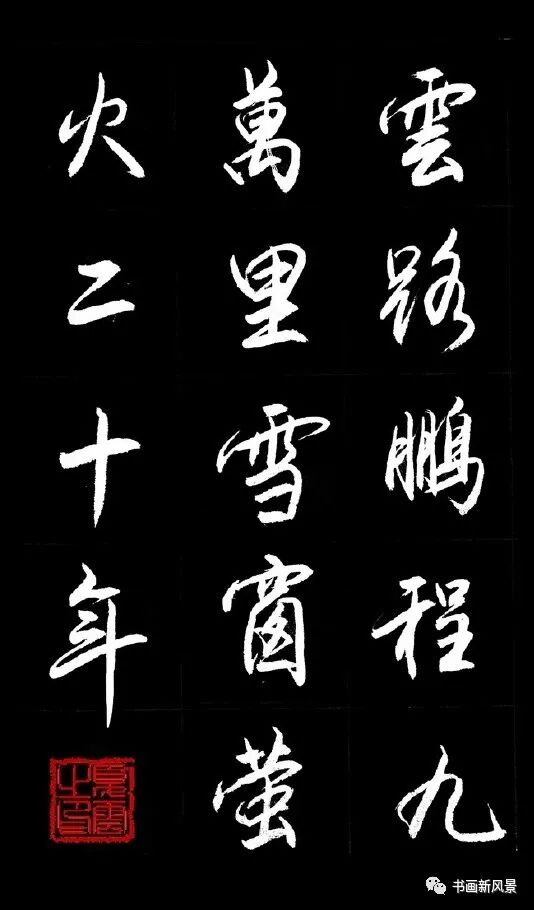 雲路鵬程九
萬里雪窗螢
火二十年
书画新风景